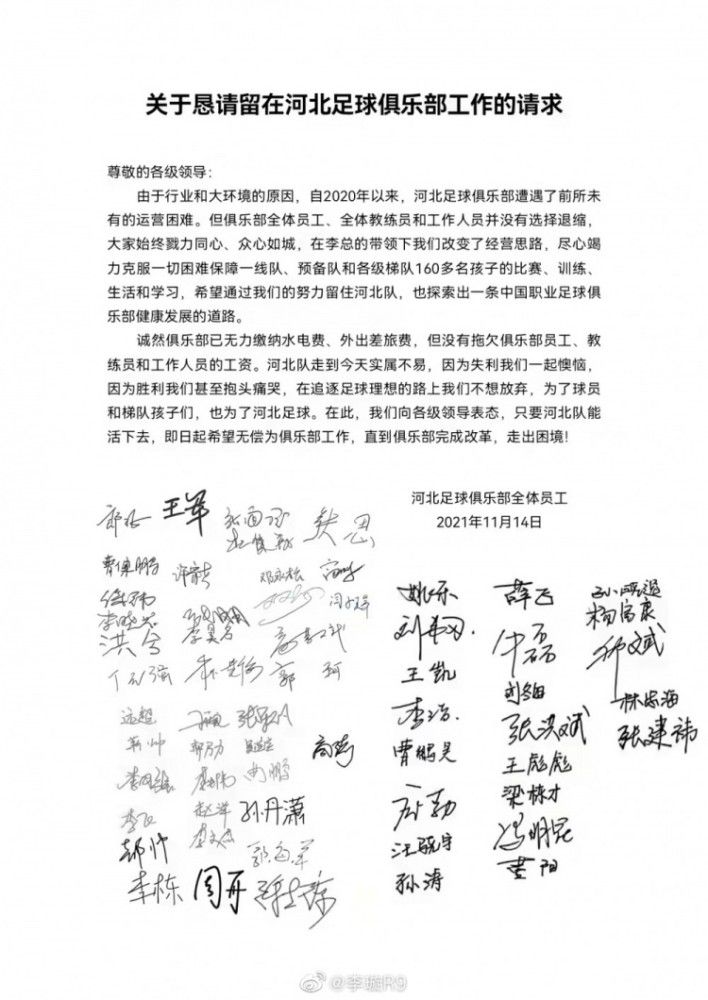 关于恳请留在河北足球俱乐部工作的请求
尊敬的各级领导：
由于行业和大环境的原因，自2020年以来，河北足球俱乐部遭遇了前所未
有的运营困难。但俱乐部全体员工、全体教练员和工作人员并没有选择退缩，
大家始终戮力同心、众心如城，在李总的带领下我们改变了经营思路，尽心竭
力克服一切困难保障一线队、预备队和各级梯队160多名孩子的比赛、训练、
生活和学习，希望通过我们的努力留住河北队，也探索出一条中国职业足球俱
乐部健康发展的道路。
诚然俱乐部已无力缴纳水电费、外出差旅费，但没有拖欠俱乐部员工、教
练员和工作人员的工资。河北队走到今天实属不易，因为失利我们一起懊恼，
因为胜利我们甚至抱头痛哭，在追逐足球理想的路上我们不想放弃，为了球员
和梯队孩子们，也为了河北足球。在此，我们向各级领导表态，只要河北队能
活下去，即日起希望无偿为俱乐部工作，直到俱乐部完成改革，走出困境！
河北足球俱乐部全体员工
2021年11月14日
王军
曹保鹏
洪兮
郭 珂
远超
孙丹潇
郭海军
李栋 周丹
姚乐
王凯
李浩
曹鹏昊
汪晓宇
孙涛
薛飞
牛磊
张洪斌
王彪彪
梁栋才
冯明昆
黄阳
杨富康
林志海
张建祎
@李璇R9